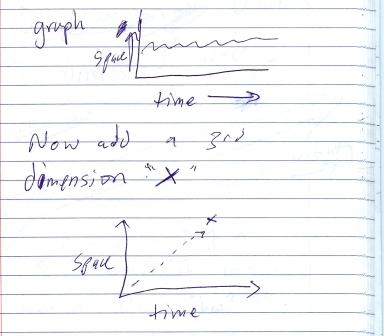 graph
space
time
Now add a 3rd
dimension "X"
x
space
time